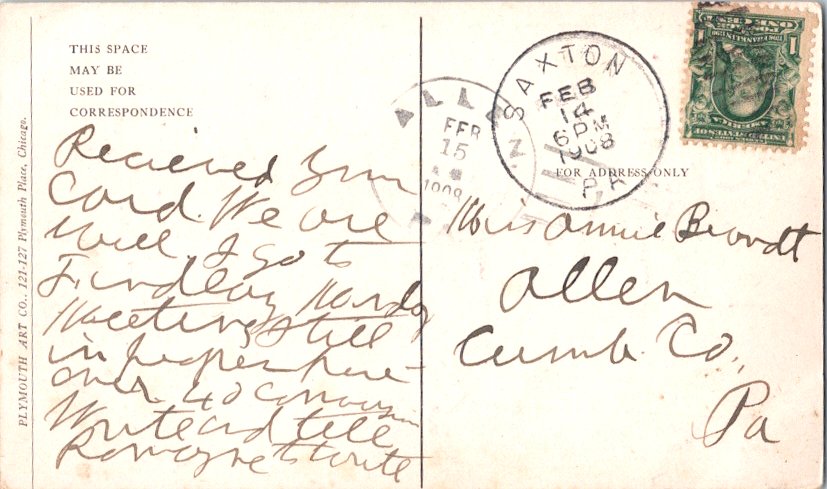 THIS SPACE
MAY BE
USED FOR
CORRESPONDENCE
PLYMOUTH ART CO., 121-127 Plymouth Place, Chicago.
Recieved Your
Card. We are
well, I go to
Findlay Monday
Meeting still
in progress here
over 40 conversions
Write and tell
Romayne to write
ALLEN
FEB
15
1908
PA
SAXTON
FEB
14
6 PM
1908
PA
FOR ADDRESS ONLY
Miss Annie Brandt
Allen
Cumb. Co.,
Pa
1
1